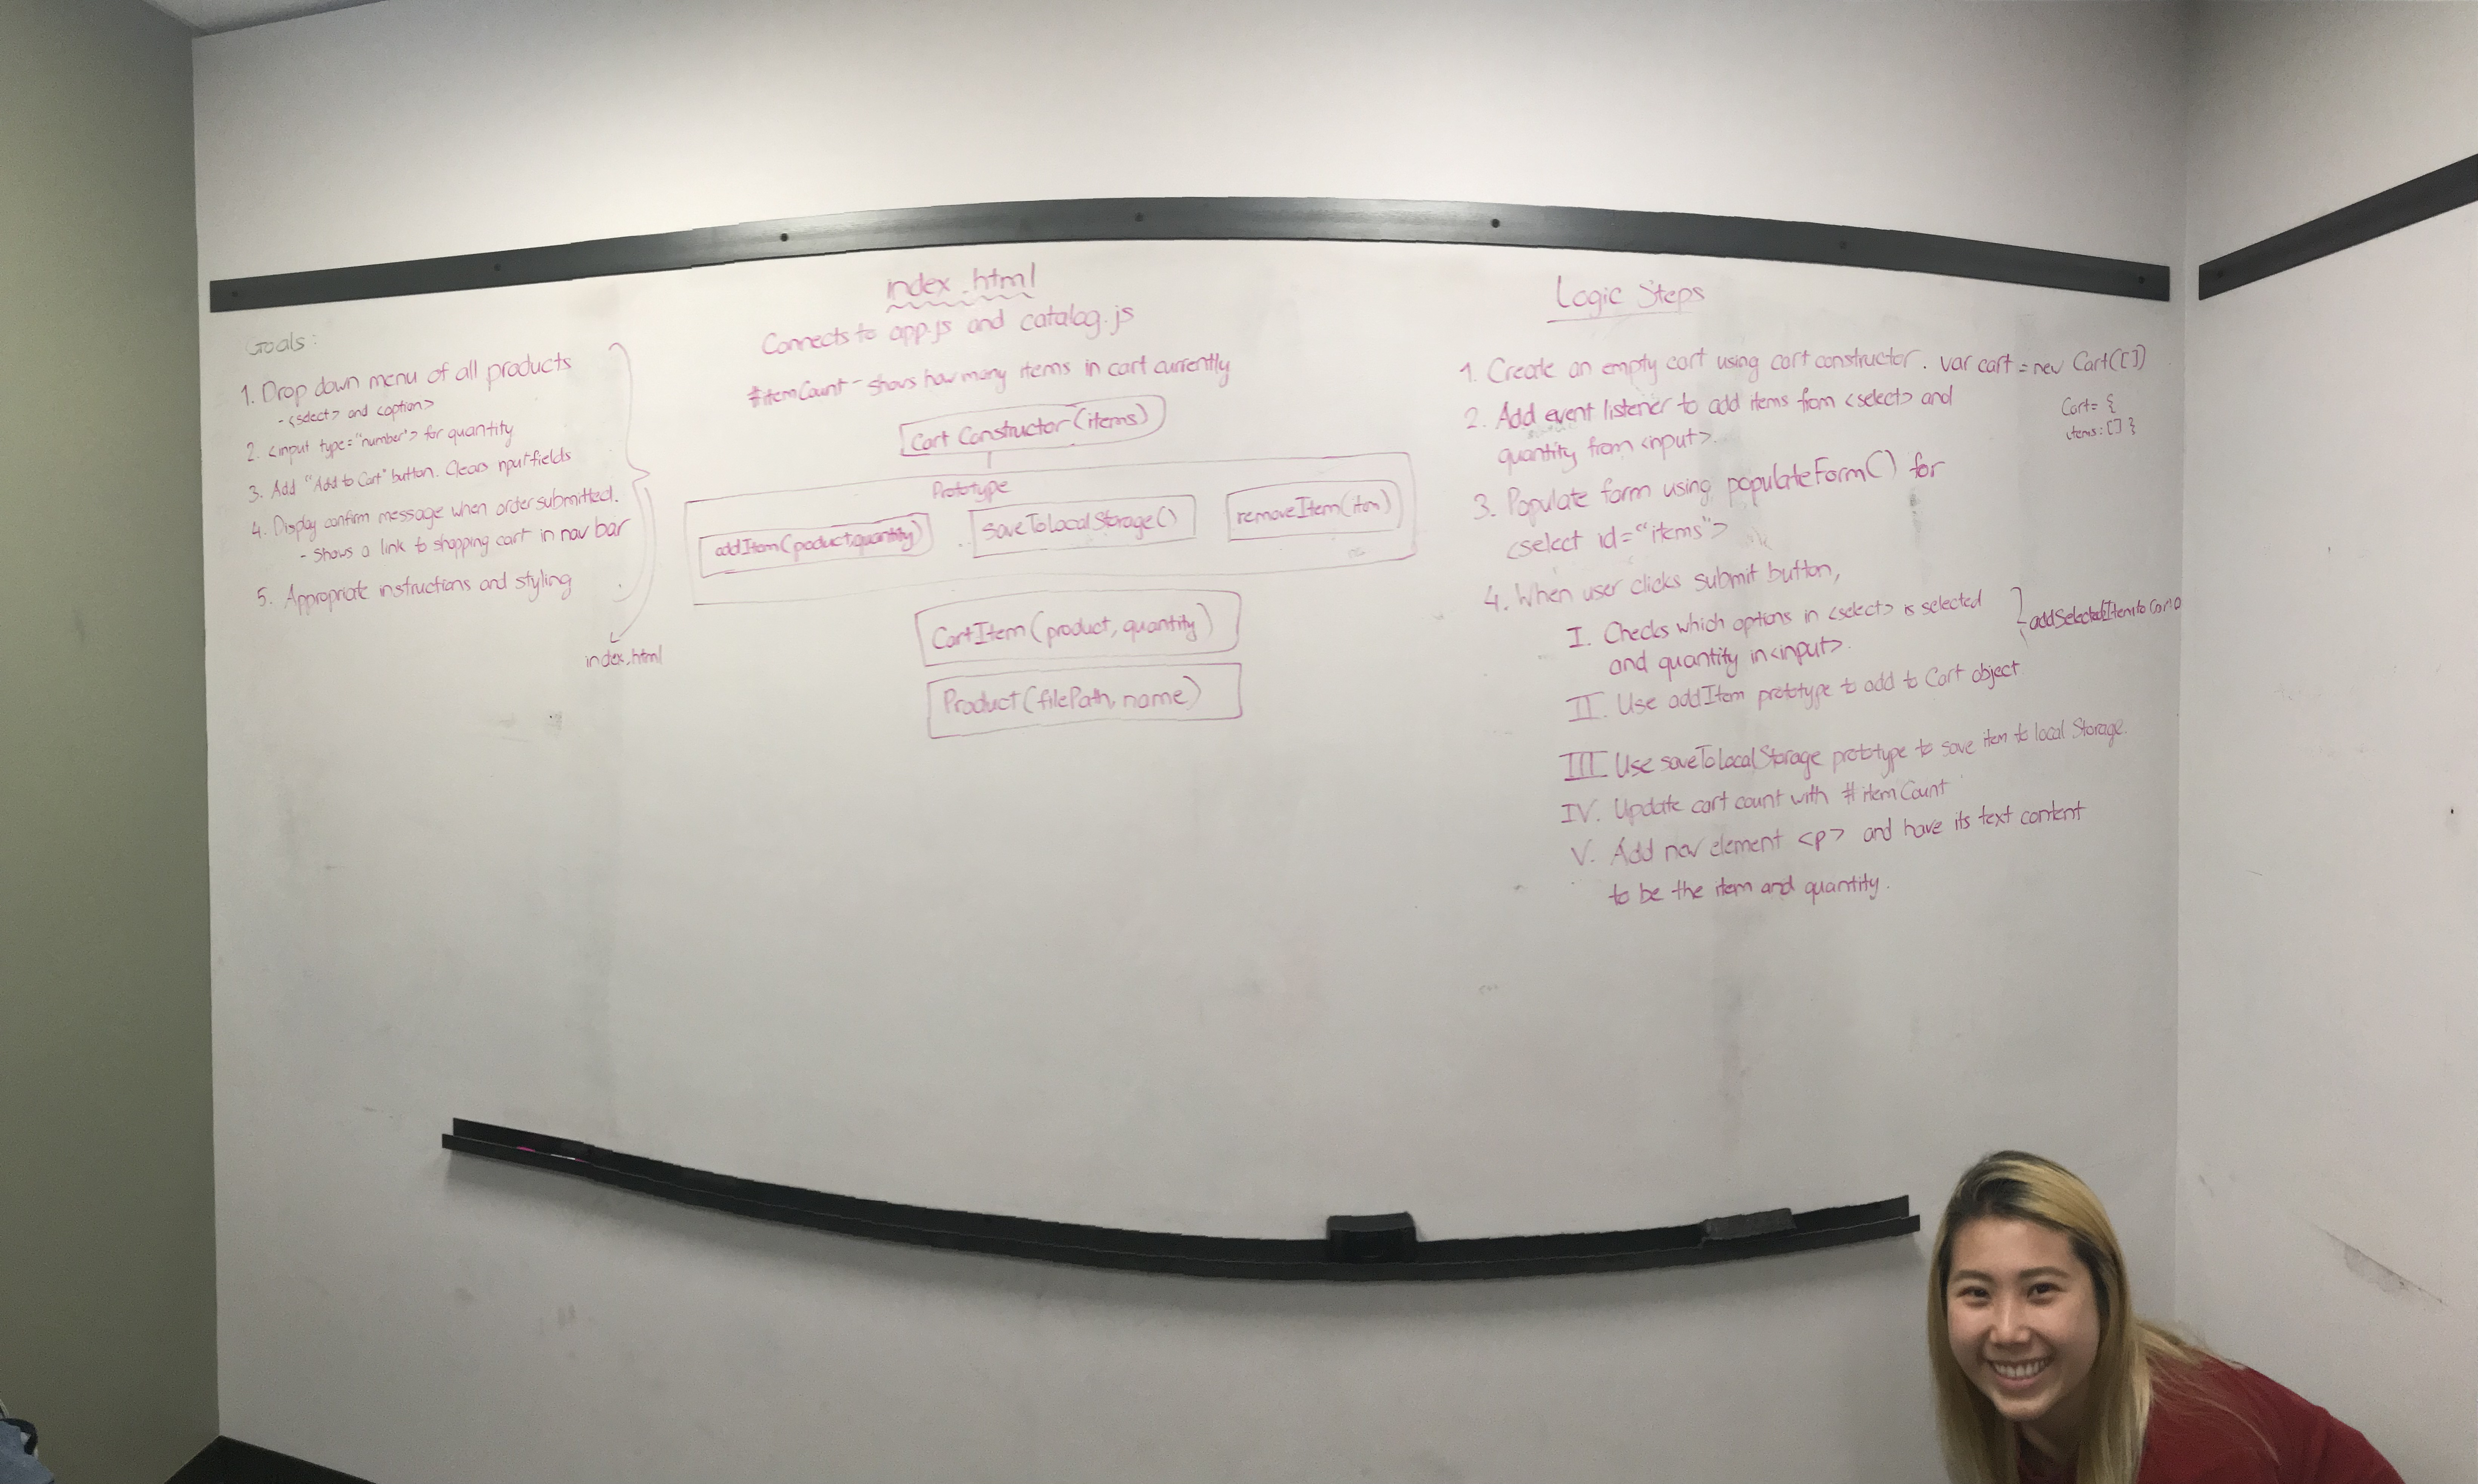 Goals:
1. Drop down menu of all products
- <select> and <option>
2. <input type="number"> for quantity
3. Add "Add to Cart" button. Clears input fields
4. Display confirm message when order submitted.
- Shows a link to shopping cart in nav bar
5. Appropriate instructions and styling
index.html
index.html
Connects to app.js and catalog.js
#itemCount - shows how many items in cart currently
Cart Constructor (items)
Prototype
addItem(product, quantity)
saveToLocalStorage()
removeItem(item)
CartItem (product, quantity)
Product (filePath, name)
Logic Steps
1. Create an empty cart using cart constructor. var cart = new Cart([])
Cart = {
items: [] }
2. Add event listener to add items from <select> and
quantity from <input>.
3. Populate form using populateForm() for
<select id="items">
4. When user clicks submit button,
I. Checks which options in <select> is selected
and quantity in <input>.
addSelectedItemtoCart()
II. Use addItem prototype to add to Cart object
III. Use saveToLocalStorage prototype to save item to local Storage.
IV. Update cart count with #itemCount
V. Add new element <p> and have its text content
to be the item and quantity.